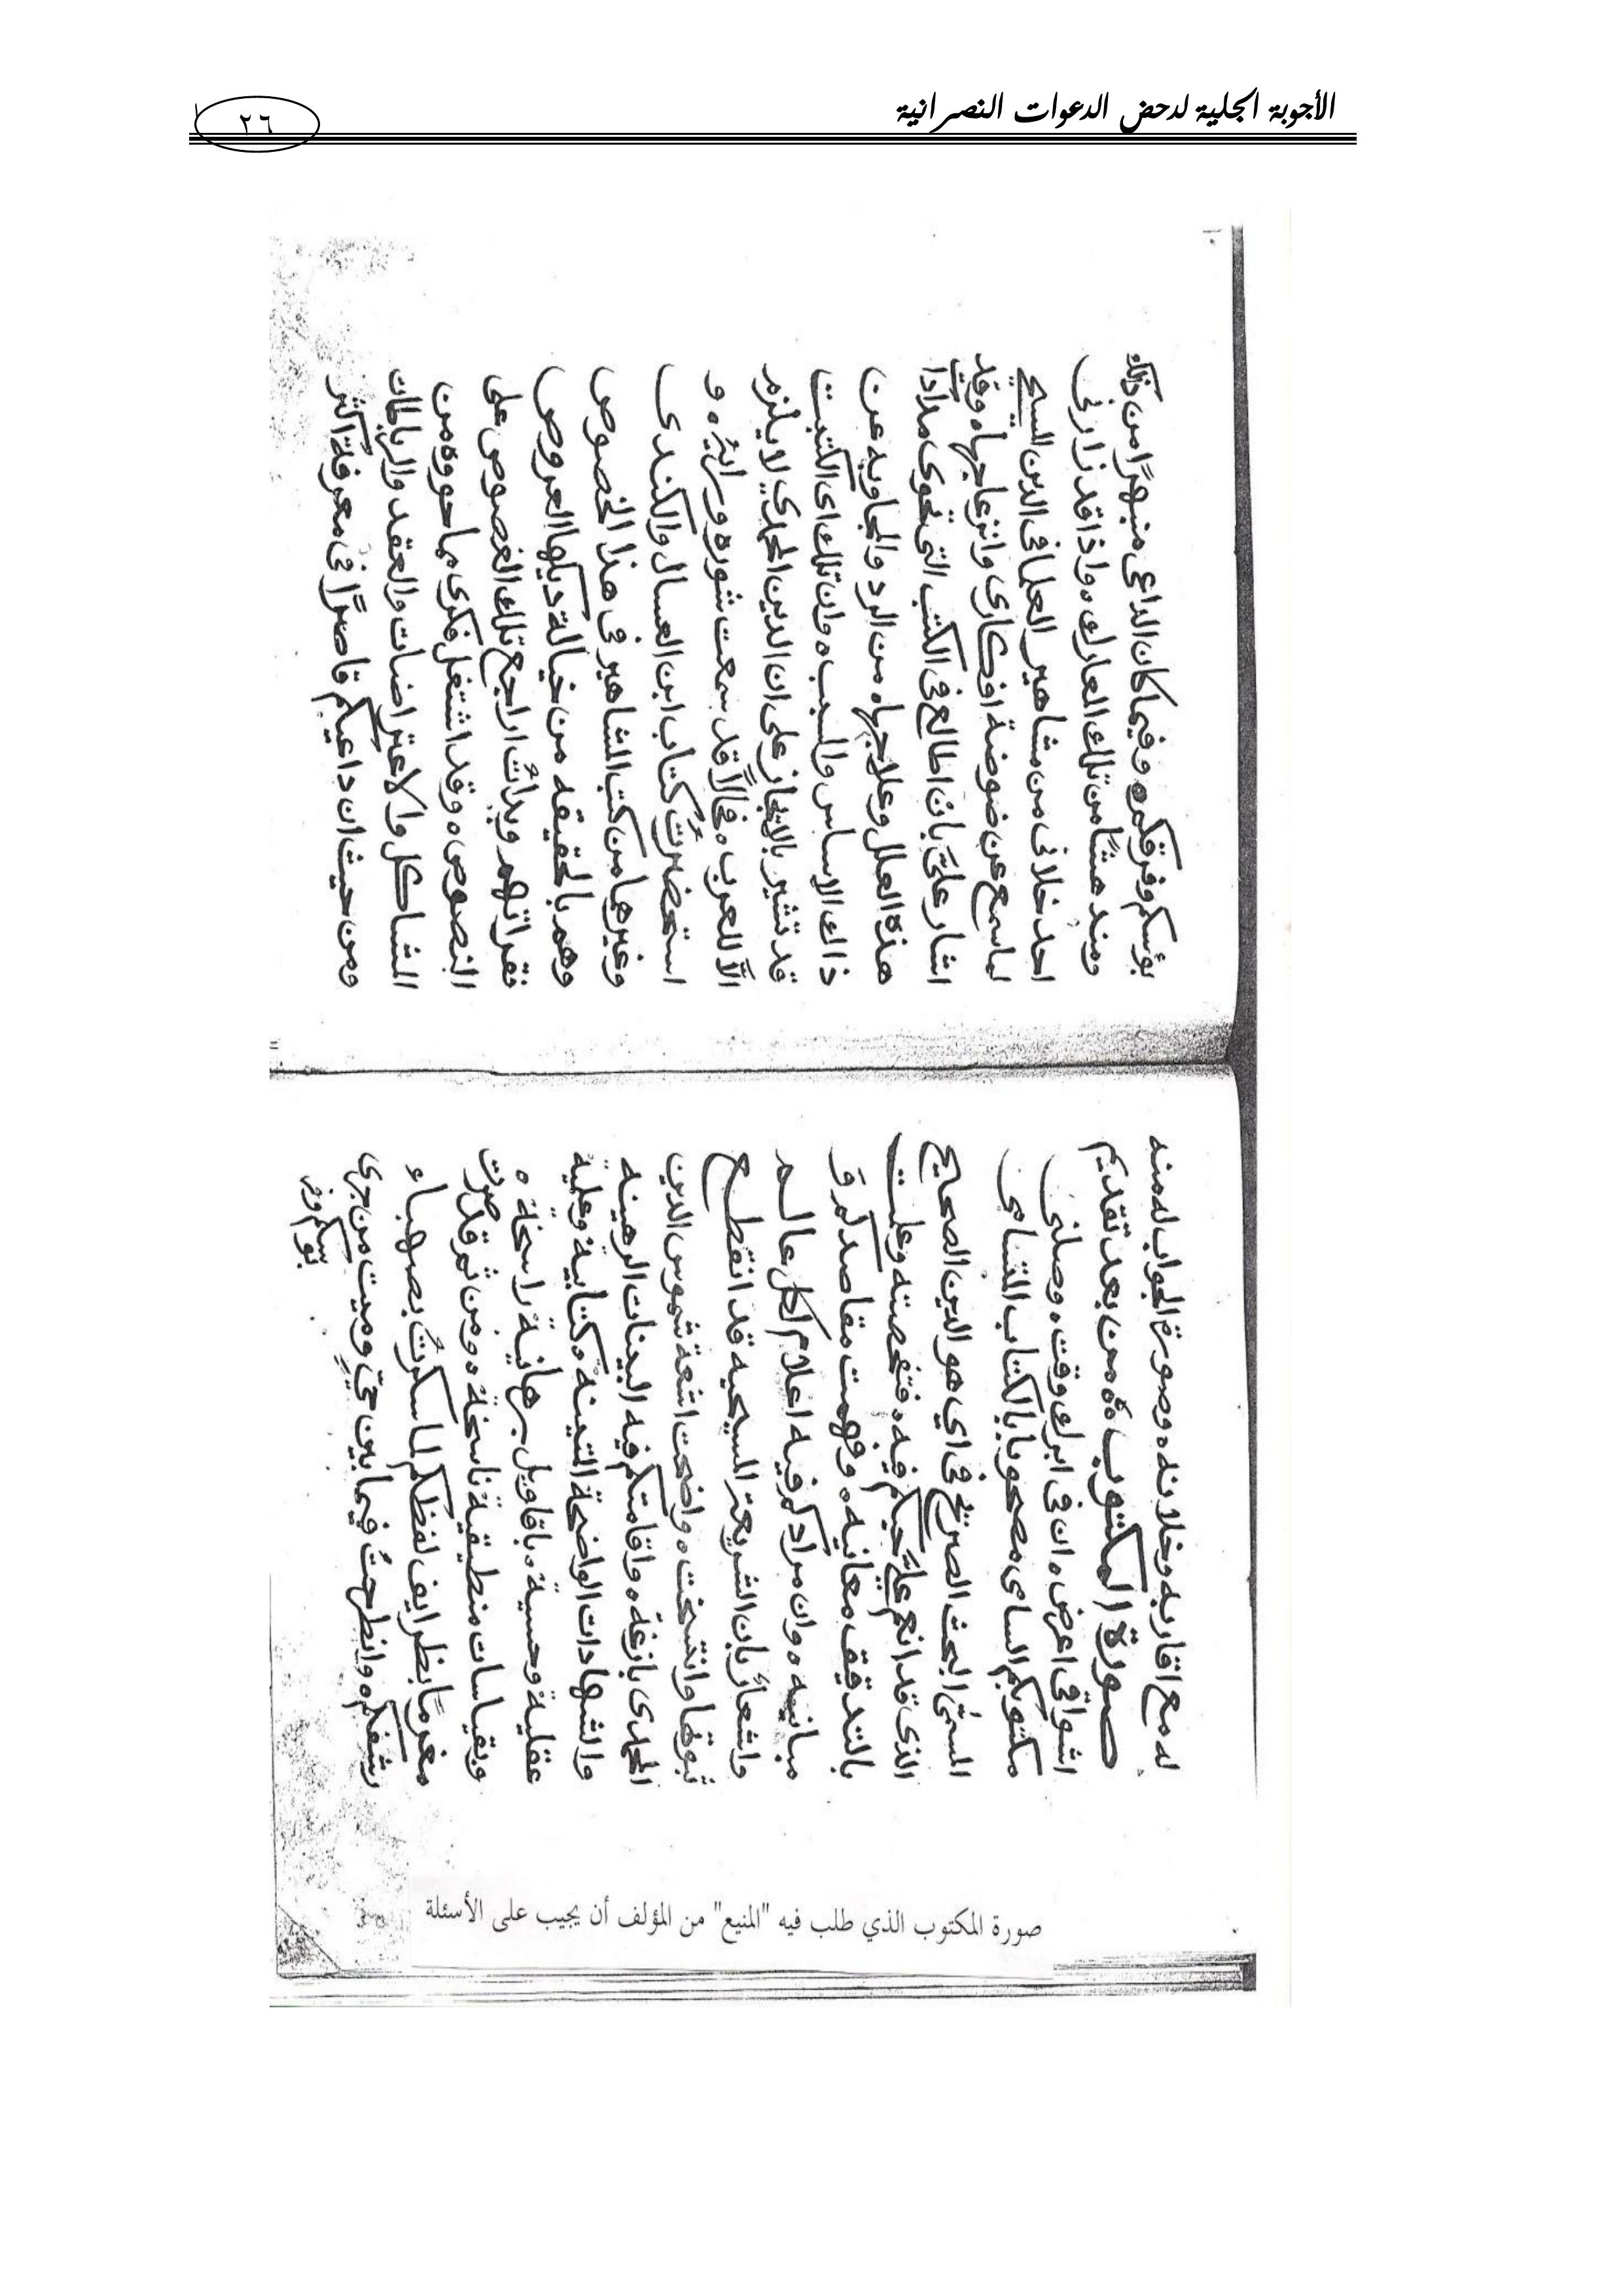 الأجوبة الجلية لدحض الدعوات النصرانية
٢٦
له مع اقاربه وخلانه وصورة الجواب له منه
صورة المكتوب من بعد تقديم
اشواقي اعرض ان في ابرك وقت وصلني
مكتوبكم السامي مصحوبا بالكتاب المتسامي
المسمى البحث الصريح في اي هو الدين الصحيح
الذي قد انعم عليَّ حبكم فيه فتفحصته وعلمت
بالتدقيق معانيه وفهمت مقاصدكم و
مبانيه وان مرادكم فيه اعلام لكل عالم
واشعار بان الشريعة المسيحيه قد انقطع
ثبوتها وانتسخت واضحت اشعة شموس الدين
المحمدي بازغة واقامتكم فيه البينات الرهينه
والشهادات الواضحة المتينة كتابية وعلمية
عقلية وحسية باقاويل برهانية راسخة
وبقياسات منطيقية ناسخة ومن ثم قد صرت
مغرمًا بظرايف لفظكم لما سكرتُ بصهباء
رشفكم وانطرحتُ فيما بين حيٍّ وميت من جرى
بؤسكم وفر
بؤسكم وفرقكم وفيما كان الداعي منبهرًا من ذلك
ومندهشًا من تلك المعارك واذا قد زارني
احد خلاني من مشاهير العلما في الدين المسيحي
لما سمع عن ضوضة افكاري وانزعاجها وقد
اشار عليَّ بان اطالع في الكتب التي تحوي مدادات
هذه العلل وعلاجها من الرد والمجاوبه عن
ذالك الاساس والسبب وان تلك اي الكتب
قد تشير بالانجاز على ان الدين المحمدي لا يلزم
الَّا للعرب فحالًا قد سمعت شوره ورايه و
استحضرتُ كتاب ابن العسال والكندي
وغيرها من كتب المشاهير في هذا الخصوص
وهم بالحقيقه من خيالة ديلها العروص
فقراتهم وبدات اراجع تلك الفصوص على
النصوص وقد اشتغل فكري بما حووه من
المشاكل والاعتراضات والعقد والرباطات
ومن حيث ان داعيكم قاصرًا في معرفة اكثر
صورة المكتوب الذي طلب فيه "المنيع" من المؤلف أن يجيب على الأسئلة